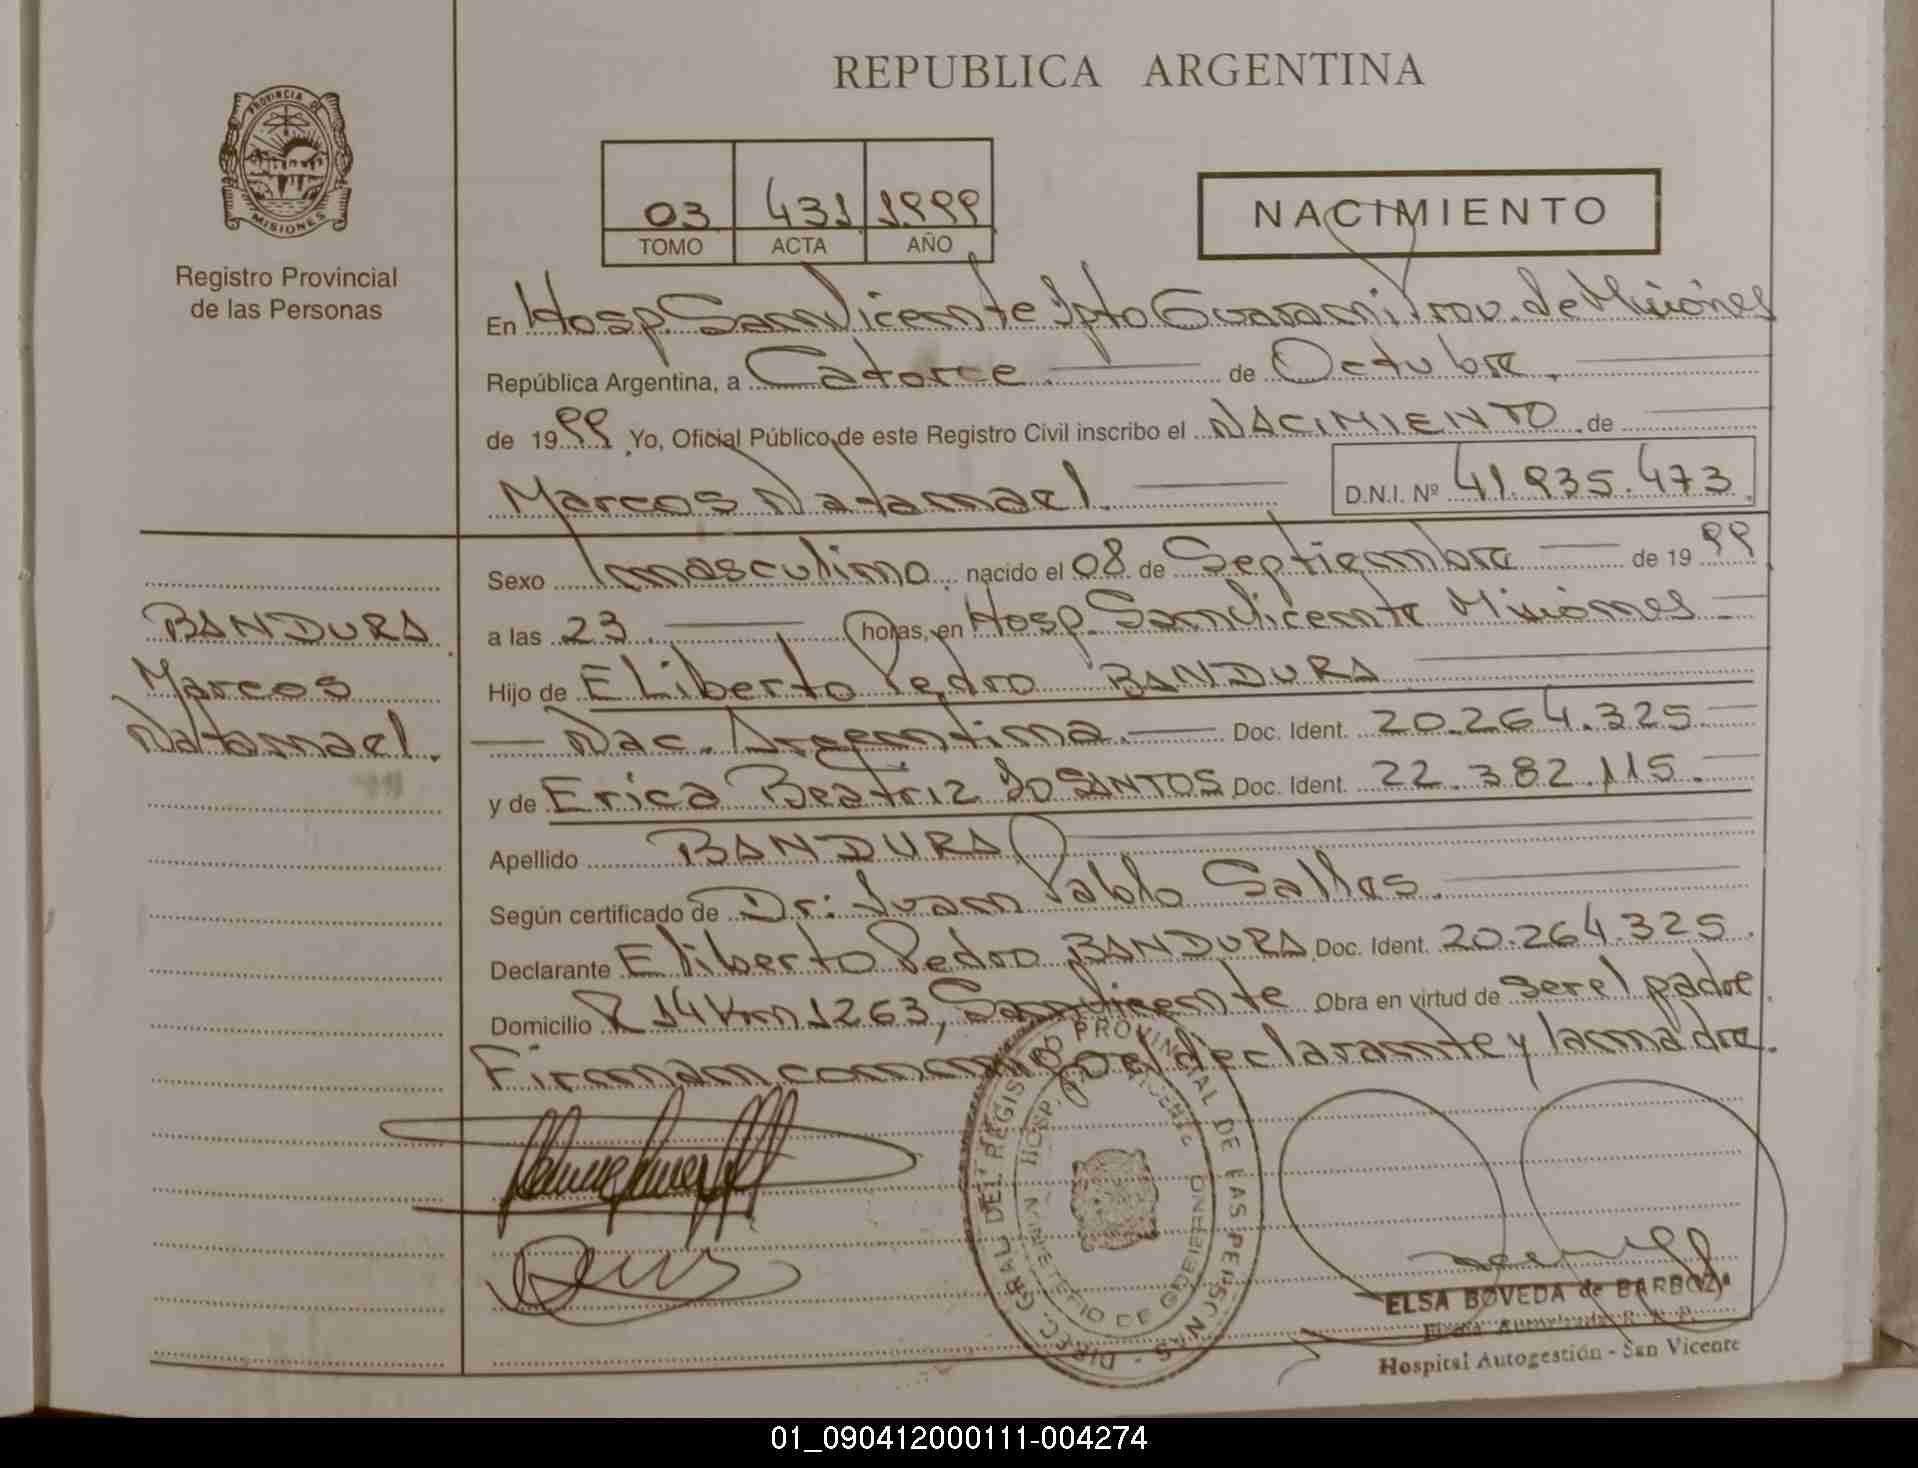 REPUBLICA ARGENTINA
PROVINCIA DE
MISIONES
Registro Provincial
de las Personas
03 431 1999
TOMO ACTA AÑO
NACIMIENTO
En Hosp. San Vicente Dpto Guarani Prov. de Misiones
República Argentina, a Catorce de Octubre
de 1999 Yo, Oficial Público de este Registro Civil inscribo el NACIMIENTO de
Marcos Natanael D.N.I. Nº 41.935.473
Sexo masculino nacido el 08 de Septiembre de 1999
a las 23 horas, en Hosp. San Vicente Misiones
BANDURA
Marcos
Natanael.
Hijo de Eliberto Pedro BANDURA
Nac. Argentina. Doc. Ident. 20.264.325
y de Erica Beatriz DO SANTOS Doc. Ident. 22.382.115.
Apellido BANDURA
Según certificado de Dr: Juan Pablo Salles.
Declarante Eliberto Pedro BANDURA Doc. Ident. 20.264.325.
Domicilio R 14 Km 1263, San Vicente Obra en virtud de ser el padre
Firman conmigo el declarante y la madre.
DIREC. GRAL. DEL REGISTRO PROVINCIAL DE LAS PERSONAS
ELSA BOVEDA de BARBOZA
Hospital Autogestión - San Vicente
01_090412000111-004274